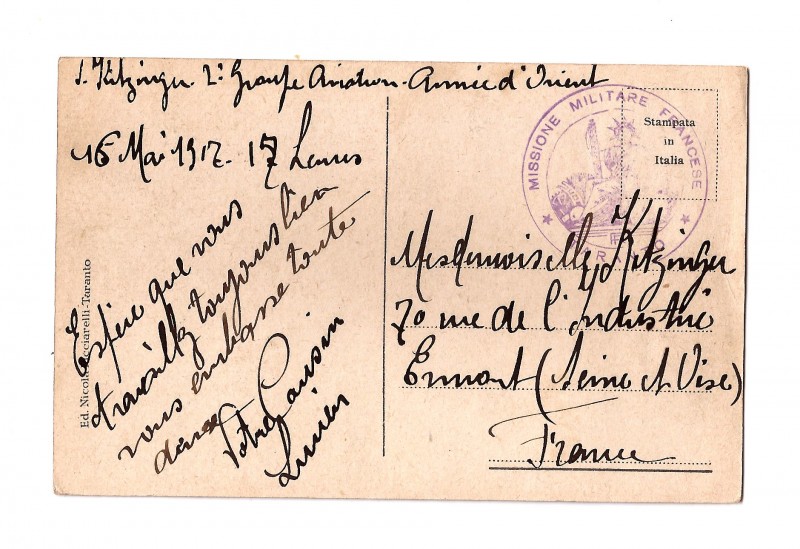 Kitzinger. 2e Groupe Aviation - Armée d'Orient
16 Mai 1917 - 17 heures
Espère que vous
travaillez toujours bien
vous embrasse toute
deux
Votre Cousin
MISSIONE MILITARE FRANCESE
Stampata
in
Italia
Mesdemoiselles Kitzinger
70 rue de l'Industrie
Ermont (Seine et Oise)
France
Ed. Nicola -Taranto